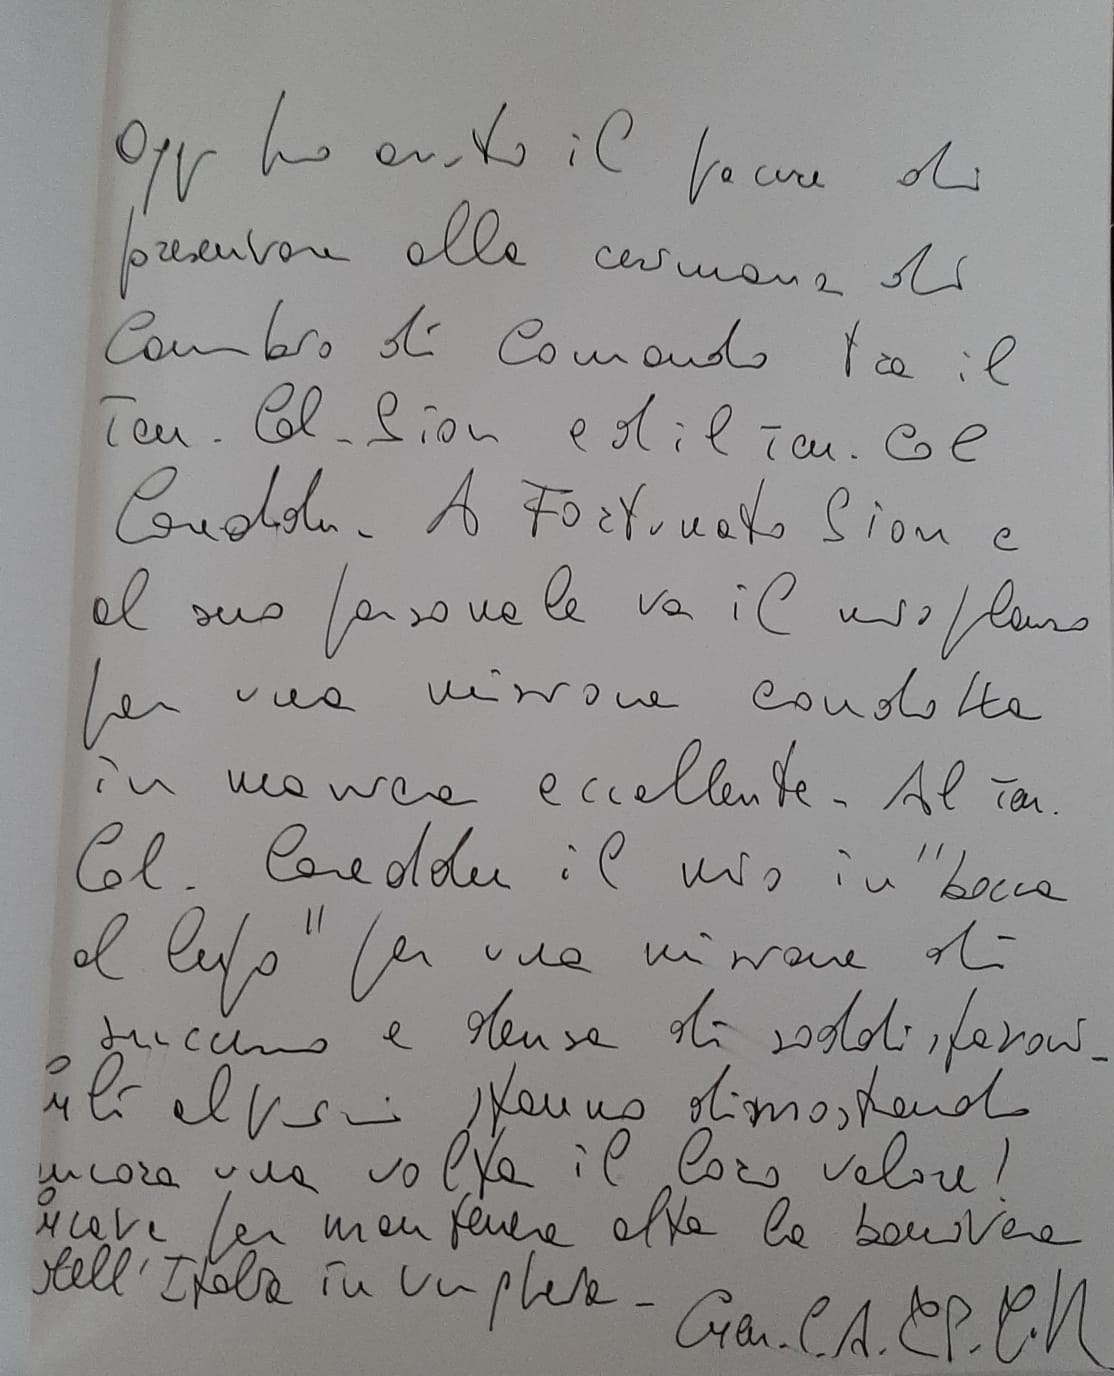 Oggi ho avuto il piacere di
presenziare alla cerimonia di
Cambio di Comando tra il
Ten. Col. Sion ed il Ten. Col
Careddu. A Fortunato Sion e
al suo personale va il mio plauso
per una missione condotta
in maniera eccellente. Al Ten.
Col. Careddu il mio in "bocca
al lupo" per una missione di
successo e densa di soddisfazioni.
Gli Alpini stanno dimostrando
ancora una volta il loro valore!
per mantenere alta la bandiera
dell'Italia in
Gen. C.A.